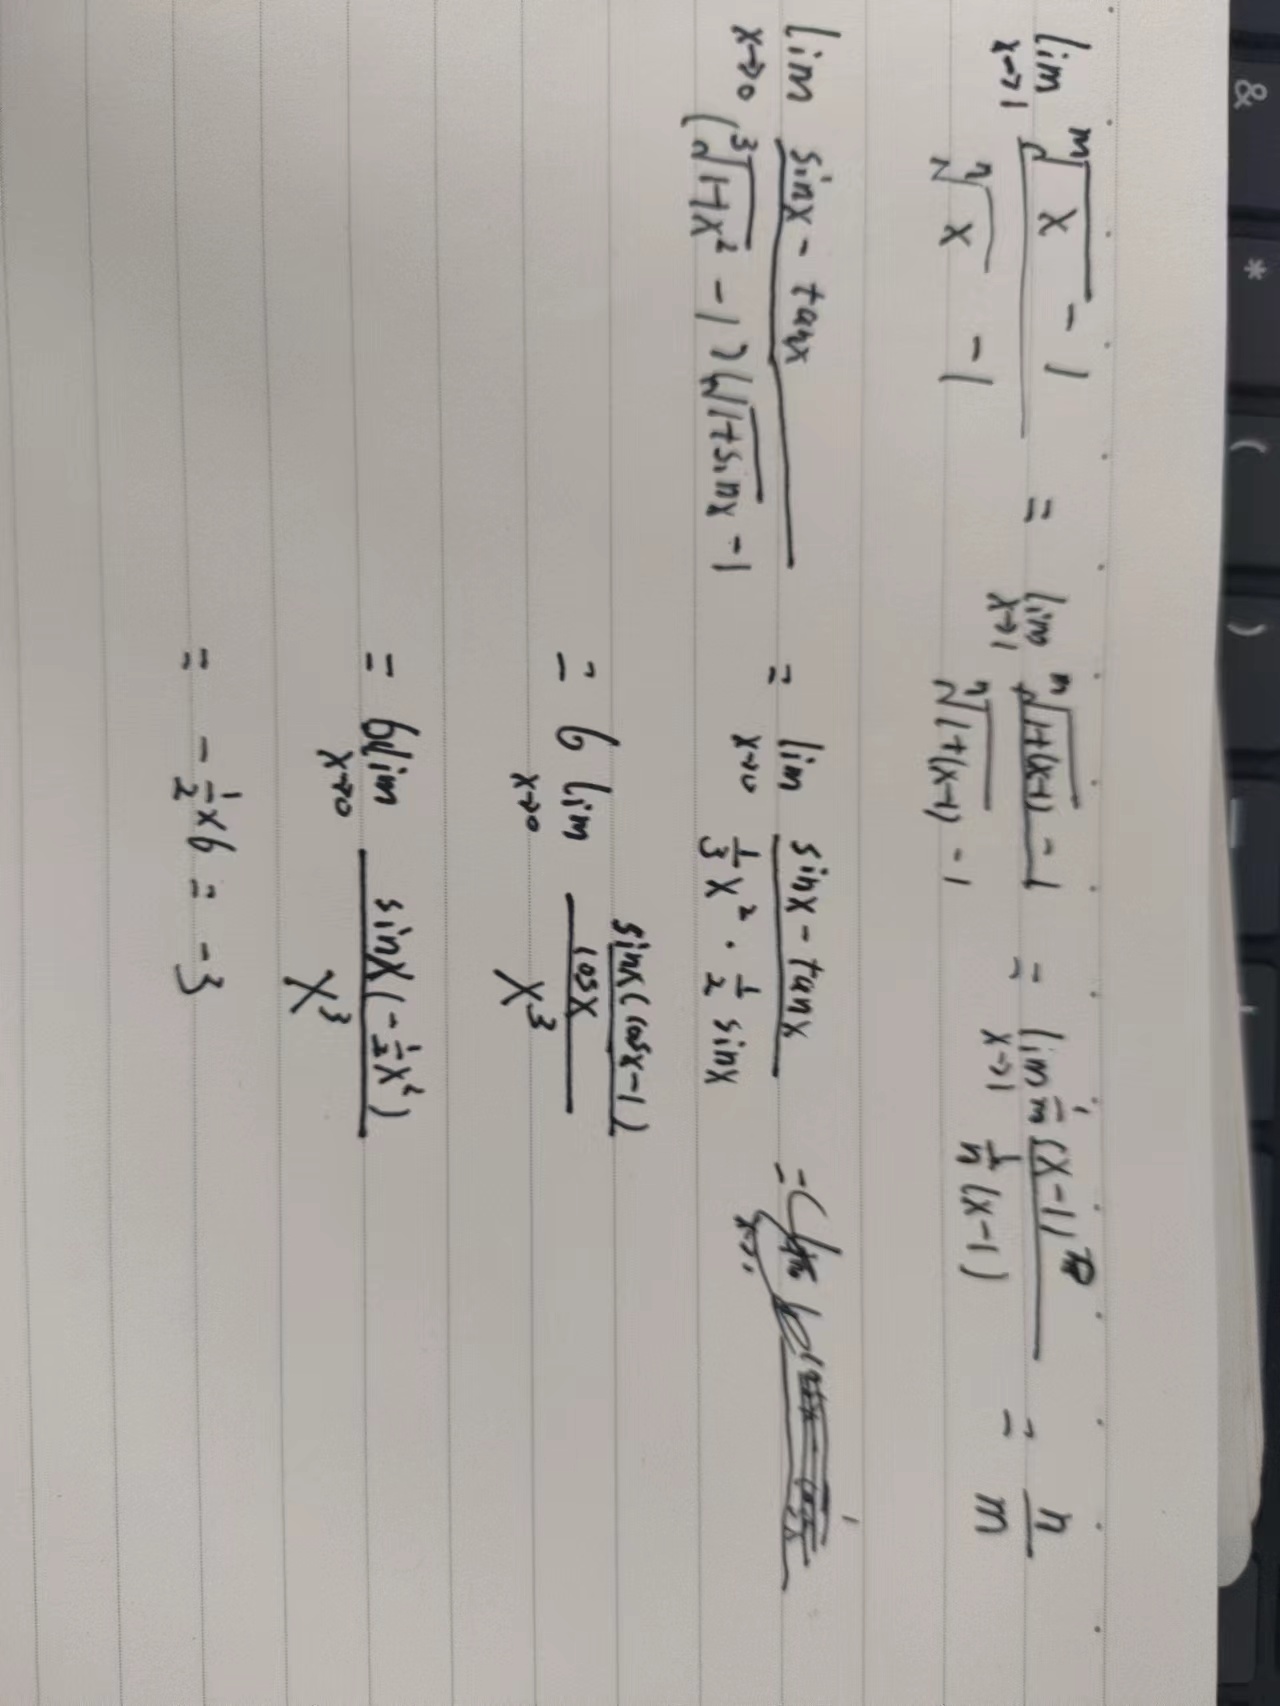 lim x→1 (ᵐ√x - 1)/(ⁿ√x - 1) = lim x→1 (ᵐ√(1+(x-1)) - 1)/(ⁿ√(1+(x-1)) - 1) = lim x→1 (1/m (x-1))/(1/n (x-1)) = n/m
lim x→0 (sinx - tanx)/((³√(1+x²) - 1)(√(1+sinx) - 1) = lim x→0 (sinx - tanx)/(1/3 x² · 1/2 sinx) =
= 6 lim x→0 (sinx(cosx-1)/cosx)/x³
= 6lim x→0 (sinx(-1/2 x²))/x³
= -1/2 x 6 = -3
& * ( )